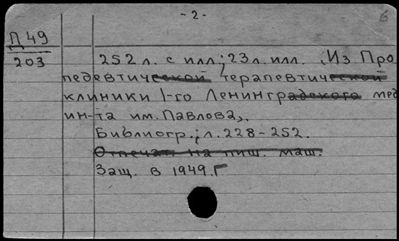 - 2 -
Д 49
203
252 л. с илл; 23 л. илл. (Из Про
педевтической терапевтической
клиники 1-го Ленинградского мед
ин-та им. Павлова).
Библиогр.; л. 228-252.
Отпечат. на пиш. маш.
Защ. в 1949.г